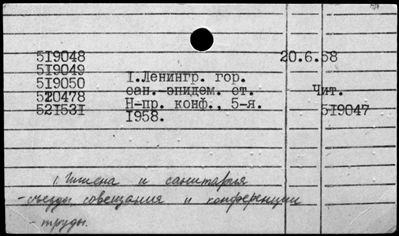 519048 20.6.58
519049
519050 I.Ленингр. гор.
520478 сан.-эпидем. ст. Чит.
521531 Н-пр. конф., 5-я. 519047
1958.
1. Гигиена и санитария
- съезды совещания и конференции
- труды.